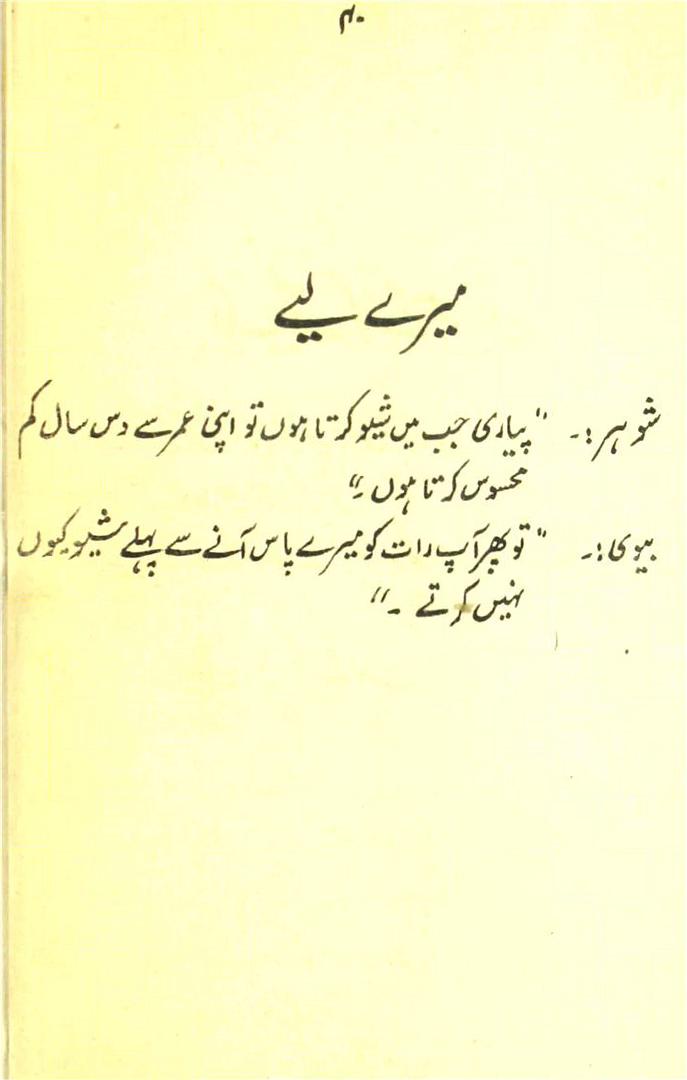 ۴۰
میرے لیے
شوہر:۔ "پیاری جب میں شیو کرتا ہوں تو اپنی عمر سے دس سال کم
محسوس کرتا ہوں۔"
بیوی:۔ "تو پھر آپ رات کو میرے پاس آنے سے پہلے شیو کیوں
نہیں کرتے ۔"